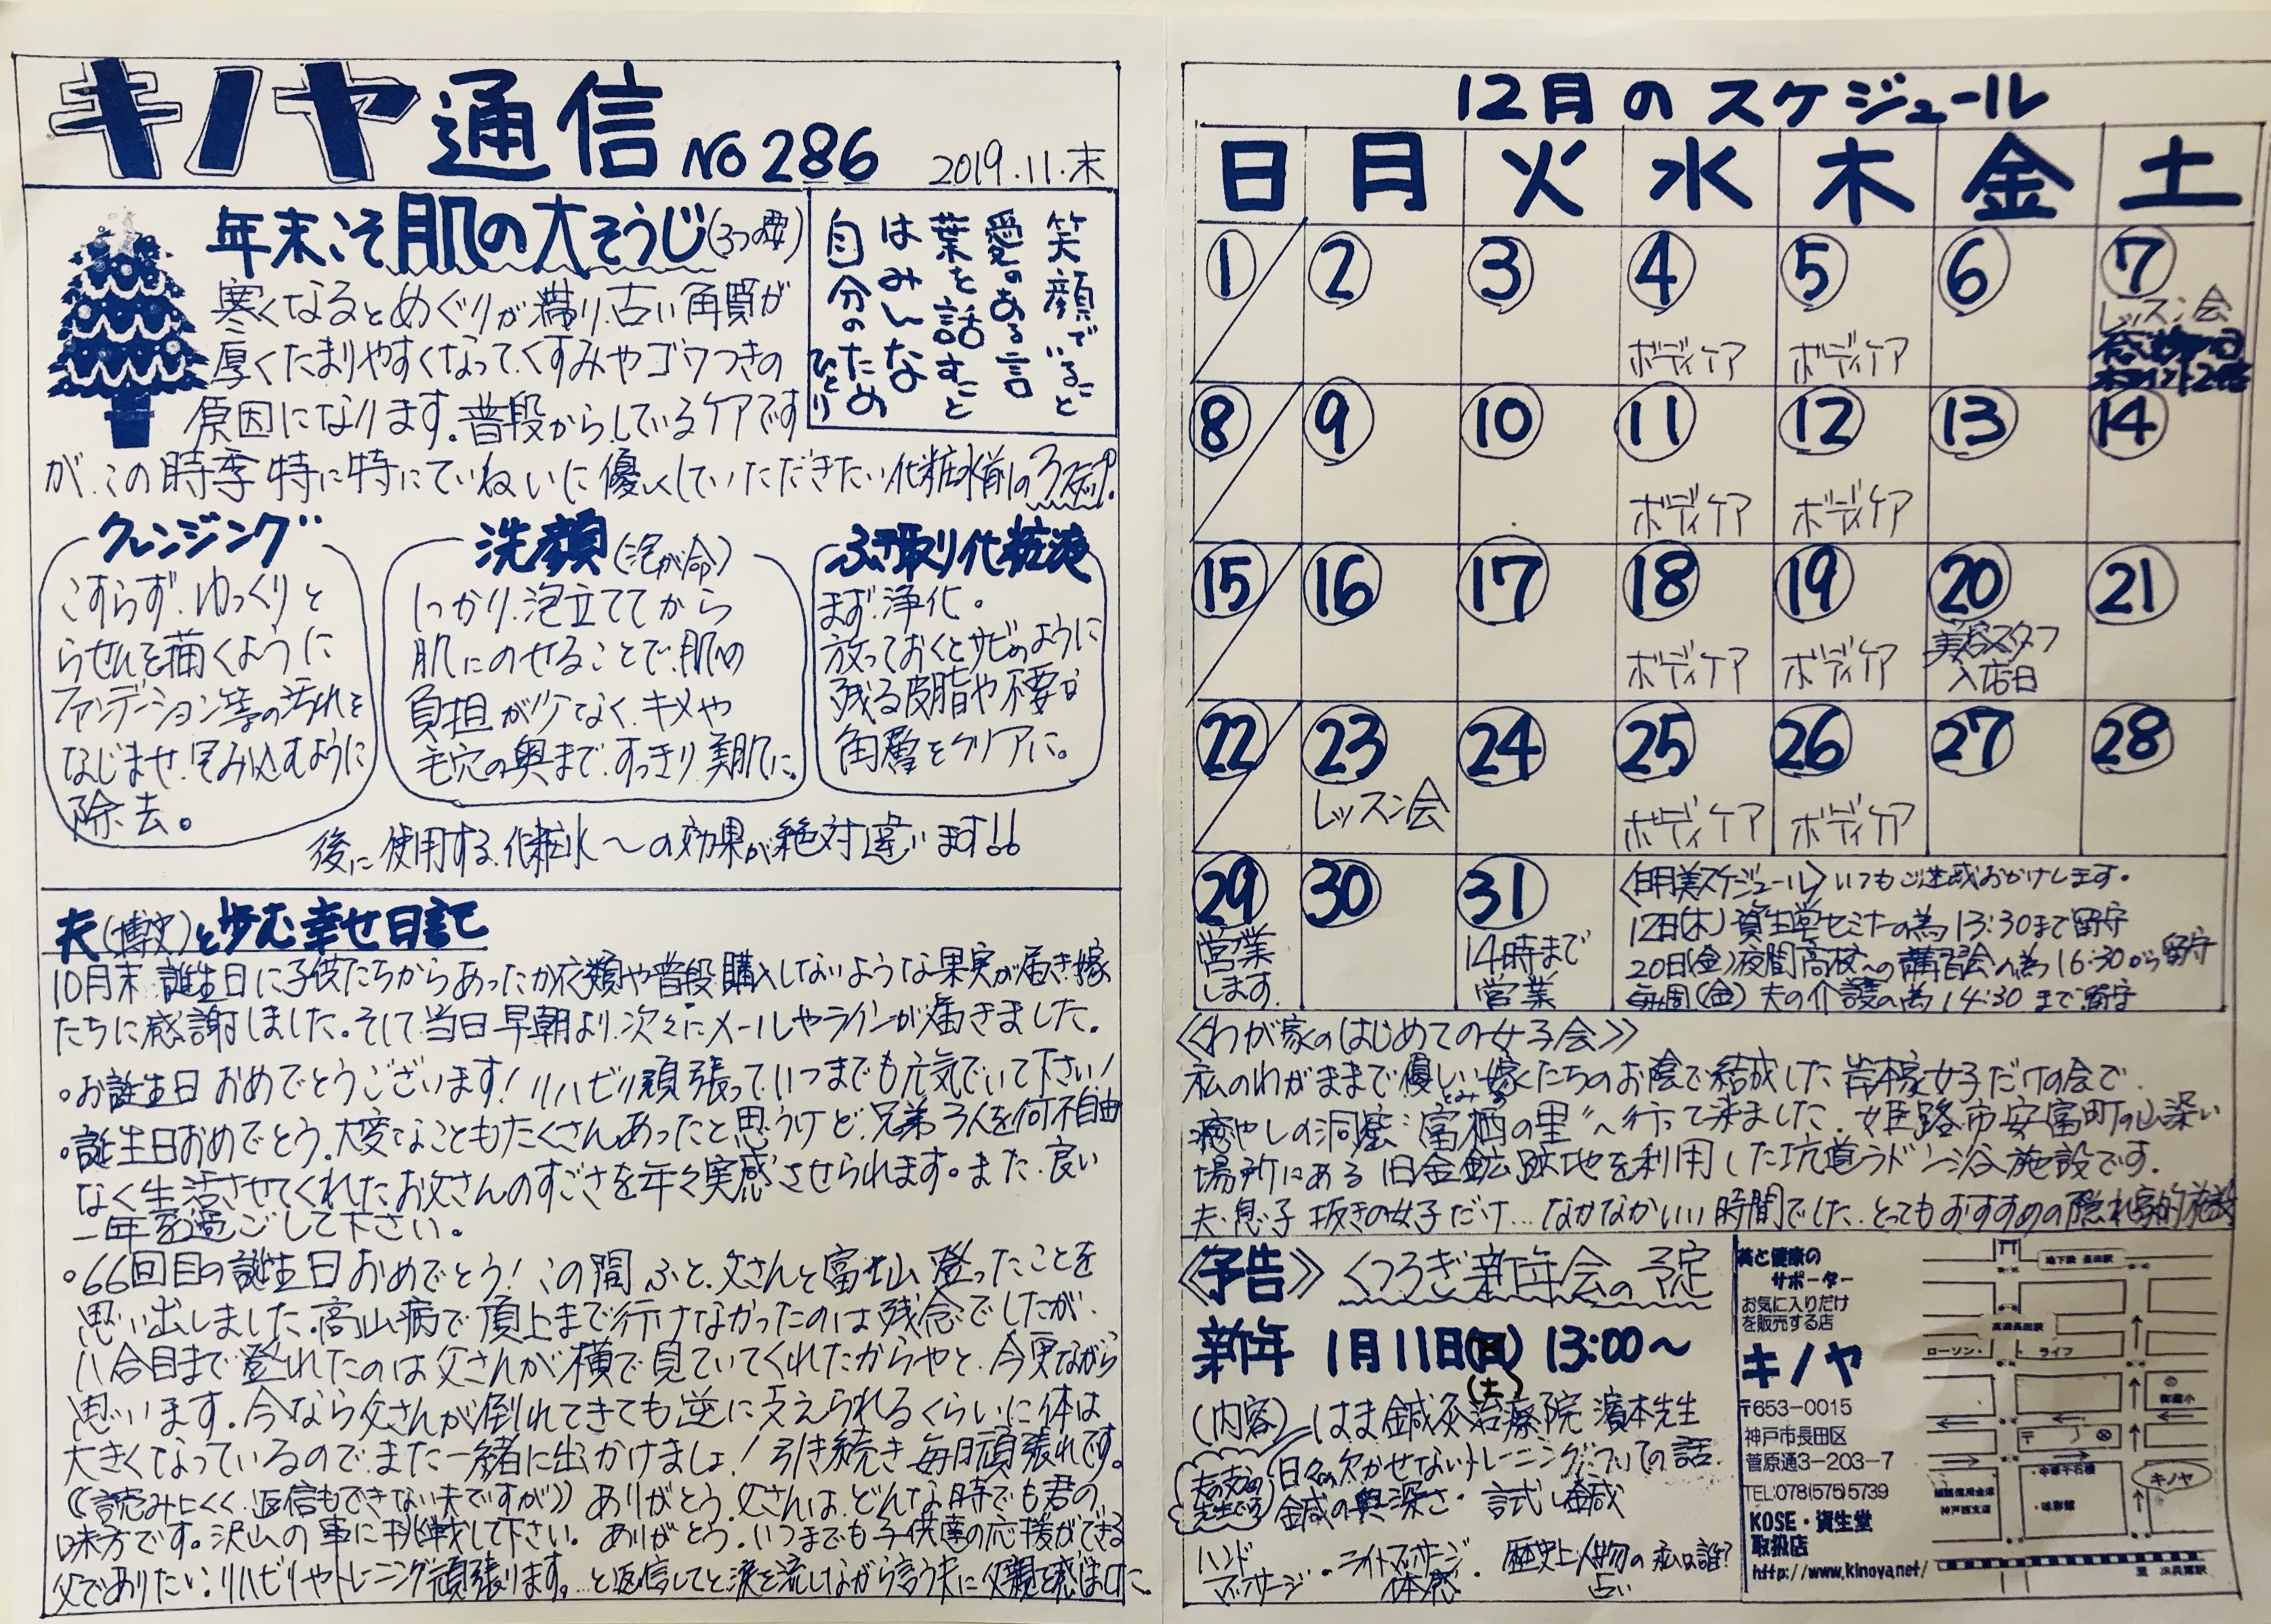 キノヤ通信 NO 286 2019.11.末
年末こそ肌の大そうじ(3つの要)
寒くなるとめぐりが滞り、古い角質が
厚くたまりやすくなって、くすみやゴワつきの
原因になります。普段からしているケアです
が、この時季特に特にていねいに優しくしていただきたい化粧水前の3ステップ。
笑顔でいること
愛のある言
葉を話すこと
はみんな
自分のため
ひとり
クレンジング
こすらず、ゆっくりと
らせんを描くように
ファンデーション等の汚れを
なじませ、包み込むように
除去。
洗顔(泡が命)
しっかり、泡立ててから
肌にのせることで、肌の
負担が少なく、キメや
毛穴の奥まで、すっきり美肌に。
ふき取り化粧液
まず、浄化。
放っておくとサビのように
残る皮脂や不要な
角層をクリアに。
後に使用する、化粧水〜の効果が絶対違います!!
夫(博史)と歩む幸せ日記
10月末 誕生日に子供たちからあったか衣類や普段購入しないような果実が届き嫁
たちに感謝しました。そして当日早朝より、次々にメールやラインが届きました。
・お誕生日おめでとうございます!リハビリ頑張って、いつまでも元気でいて下さい!
・誕生日おめでとう。大変なこともたくさんあったと思うけど、兄弟3人を何不自由
なく生活させてくれたお父さんのすごさを年々実感させられます。また、良い
一年を過ごして下さい。
・66回目の誕生日おめでとう!この間ふと、父さんと富士山登ったことを
思い出しました。高山病で頂上まで行けなかったのは残念でしたが、
八合目まで登れたのは父さんが横で見ていてくれたからやと、今更ながら
思います。今なら父さんが倒れてきても逆に支えられるくらいに体は
大きくなっているので、また一緒に出かけましょ!引き続き毎日頑張れです。
《読みにくく、返信もできない夫ですが》ありがとう。父さんは、どんな時でも君の
味方です。沢山の事に挑戦して下さい。ありがとう。いつまでも子供達の応援ができる
父でありたい。リハビリやトレーニング頑張ります。…と返信してと涙を流しながら言う夫に父親を感じました。
12月のスケジュール
日 月 火 水 木 金 土
1 2 3 4 5 6 7
ボディケア ボディケア レッスン会
ポイント2倍
8 9 10 11 12 13 14
ボディケア ボディケア
15 16 17 18 19 20 21
ボディケア ボディケア 美容スタッフ
入店日
22 23 24 25 26 27 28
レッスン会 ボディケア ボディケア
29 30 31
営業
します。
14時まで
営業
〈明美スケジュール〉いつもご迷惑おかけします。
12日(木)資生堂セミナーの為13:30まで留守
20日(金)夜間高校への講習会の為16:30から留守
毎週(金)夫の介護の為14:30まで留守
《わが家のはじめての女子会》
私のわがままで優しい嫁たちのお陰で結成した岸本家女子だけの会で、
癒やしの洞窟“富栖の里”へ行って来ました。姫路市安富町の山深い
とみす
場所にある旧金鉱跡地を利用した坑道ラドン浴施設です。
夫、息子抜きの女子だけ…なかなかいい時間でした。とってもおすすめの隠れ家的施設
《予告》くつろぎ新年会の予定
新年 1月11日(土) 13:00〜
(内容)はま鍼灸治療院 濱本先生
夫の支えの
先生です
日々の欠かせないトレーニングについての話
鍼の奥深さ・試し鍼
ハンド
マッサージ・ライトマッサージ
体感・歴史上人物の私は誰?
占い
美と健康の
サポーター
お気に入りだけ
を販売する店
キノヤ
〒653-0015
神戸市長田区
菅原通3-203-7
TEL:078(575)5739
KOSE・資生堂
取扱店
http://www.kinoya.net/
地下鉄 長田駅
高速長田駅
ローソン・
ライフ
御蔵小
〒
神戸西支店
・味彩館
キノヤ